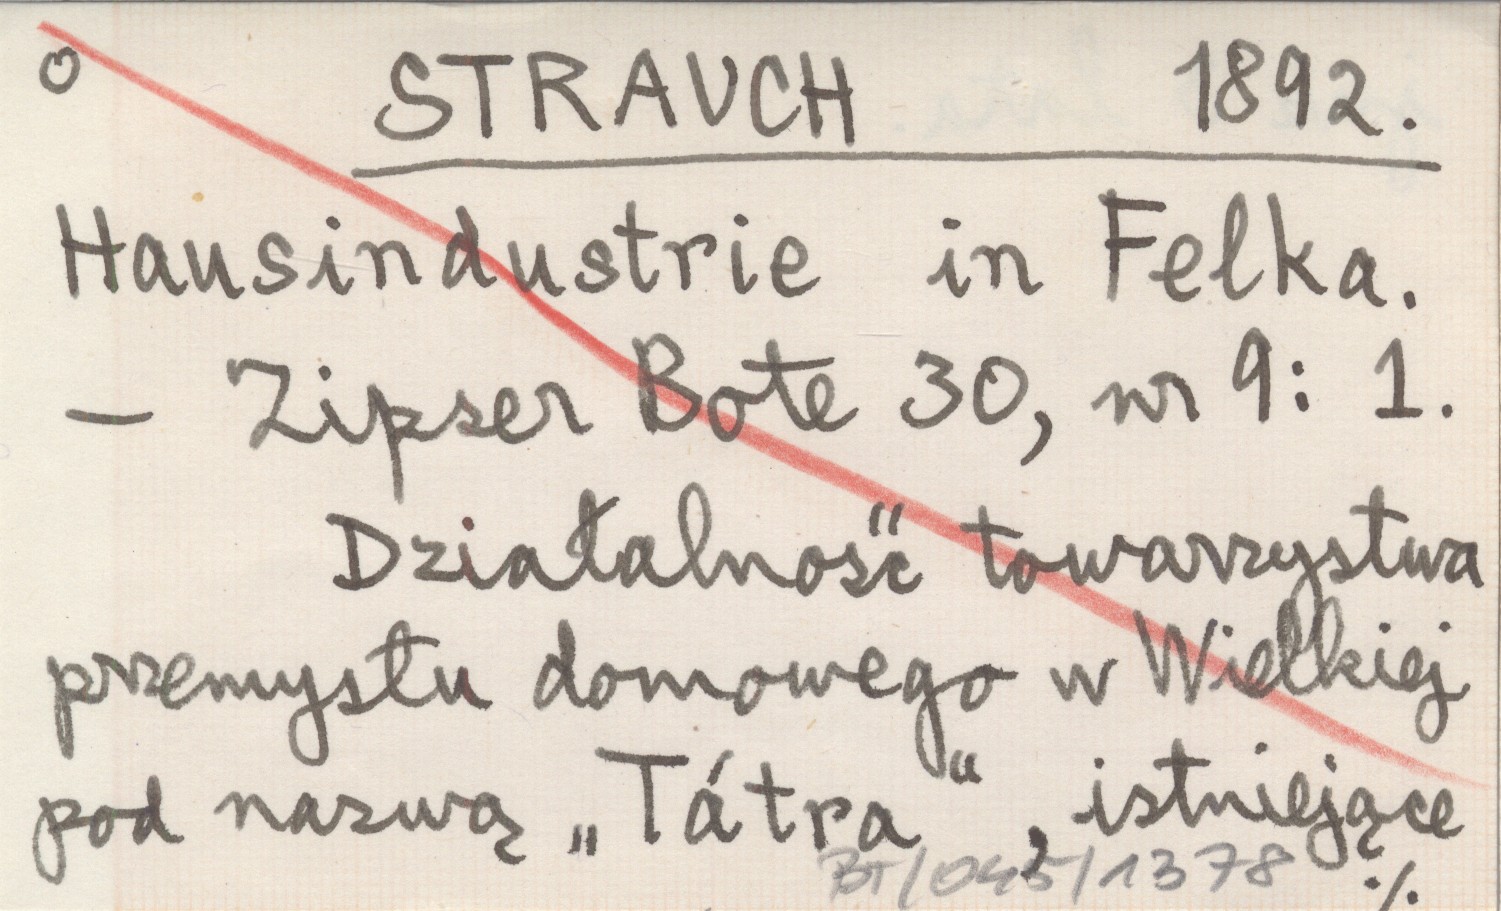 o STRAUCH 1892.
Hausindustrie in Felka.
— Zipser Bote 30, nr 9: 1.
Działalność towarzystwa
przemysłu domowego w Wielkiej
pod nazwą „Tátra", istniejące
BT/045/1378 ./.